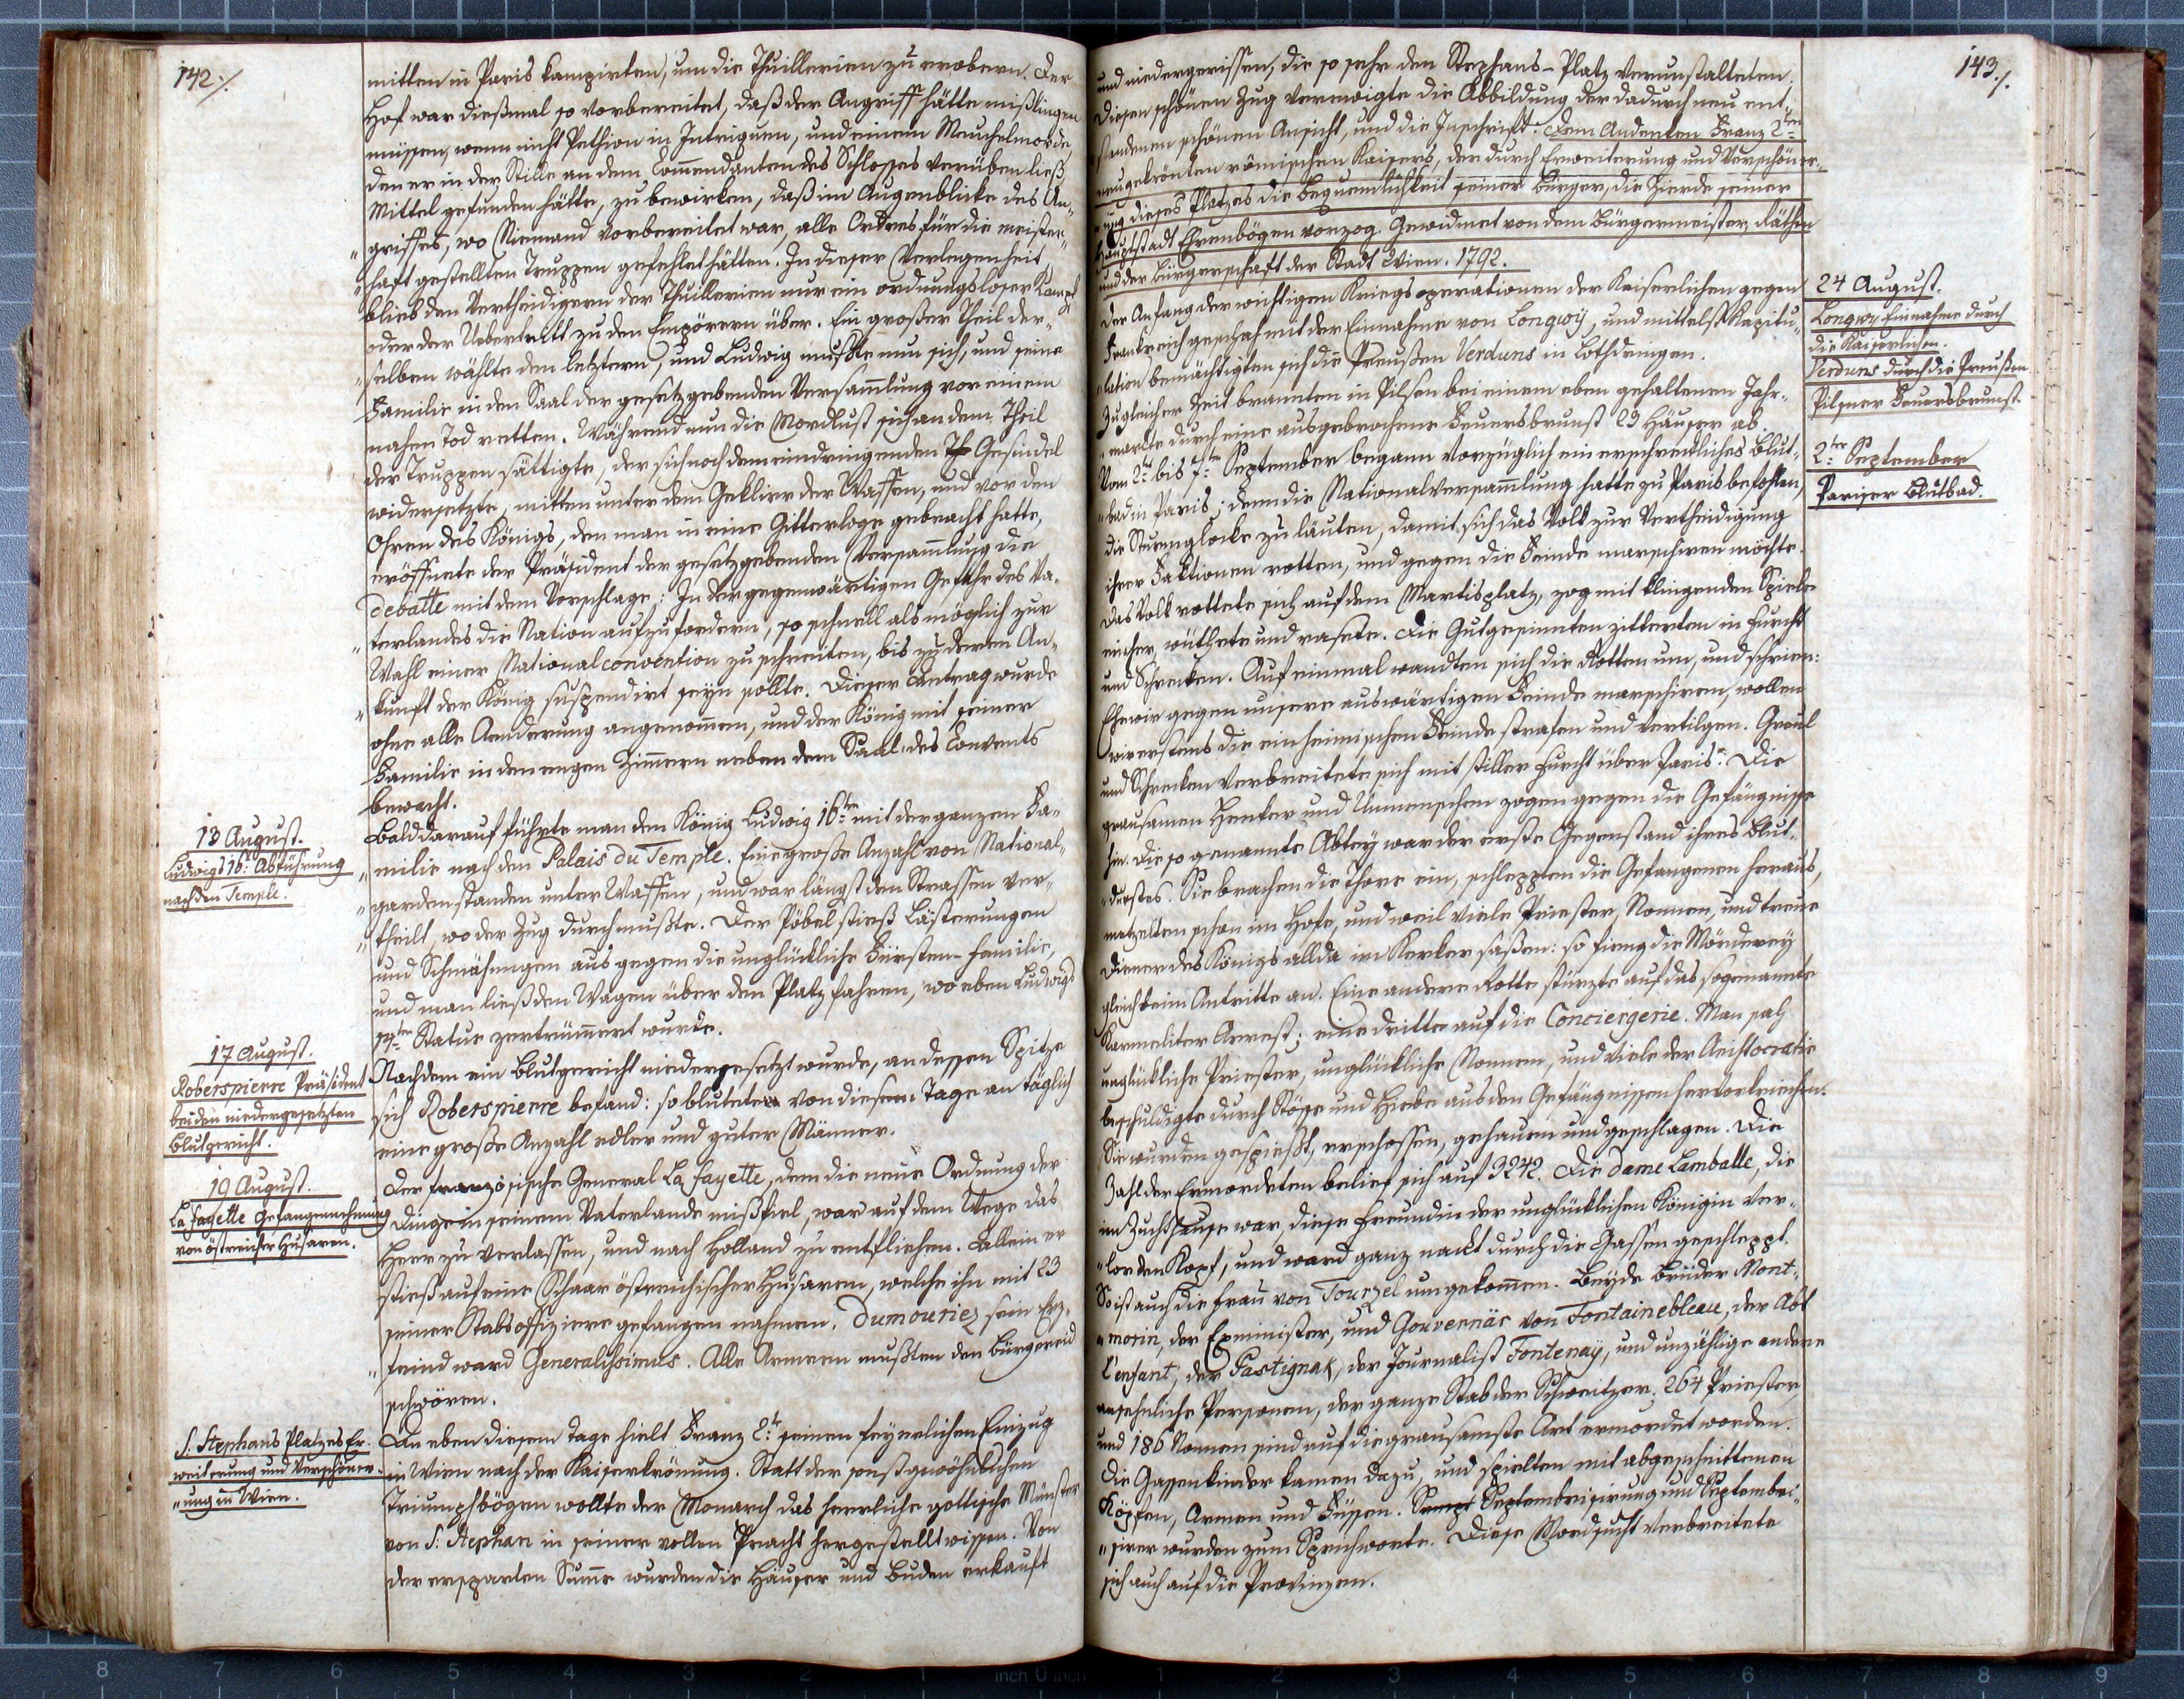 142 ⁒.
mitten in Paris kampirten, um die Thuillerien zu erobern. Der
Hof war dießmal so vorbereitet, daß der Angriff hätte mißlingen
müssen, wenn nicht Pethion in Intriguen, und einem Meuchelmorde,
den er in der Stille an dem Com̅endanten des Schlosses verüben ließ,
Mittel gefunden hätte, zu bewirken, daß im Augenblicke des An„
„griffes, wo Niemand vorbereitet war, alle Ordres für die meister„
„haft gestellten Truppen gefehlet hätten. In dieser Verlegenheit
blieb den Vertheidigern der Thuillerien nur ein ordnungsloser Kampf
oder der Uebertritt zu den Empörern über. Ein großer Theil der„
„selben wählte den letztern, und Ludwig mußte nun sich, und seine
Familie in den Saal der gesetzgebenden Versam̅lung vor einem
nahen Tod retten. Während nun die Mordlust sich an dem Theil
der Truppen sättigte, der sich noch dem eindringenden Gesindel
widersetzte, mitten unter dem Geklirr der Waffen, und vor den
Ohren des Königs, den man in eine Gitterloge gebracht hatte,
eröffnete der Präsident der gesetzgebenden Versam̅lung die
Debatte mit dem Vorschlage: In der gegenwärtigen Gefahr des Va„
„terlandes die Nation aufzufordern, so schnell als möglich zur
Wahl einer Nationalconvention zu schreiten, bis zu deren An„
„kunft der König suspendirt seyn sollte. Dieser Antrag wurde
ohne alle Aenderung angenom̅en, und der König mit seiner
Familie in den engen Zim̅ern neben dem Saal des Convents
bewacht.
13 August.
Ludwigs 16t. Abführung
nach den Temple.
Bald darauf führte man den König Ludwig 16ten mit der ganzen Fa„
„milie nach den Palais du Temple. Eine große Anzahl von National„
„garden standen unter Waffen, und war längst den Strassen ver„
„theilt, wo der Zug durch mußte. Der Pöbel stieß Lästerungen
und Schmähungen aus gegen die unglückliche Fürsten-Familie,
und man ließ den Wagen über den Platz fahren, wo eben Ludwigs
14ten Statue zertrüm̅ert wurde.
17 August.
Roberspierre Präsident
bei den niedergesetzten
Blutgericht.
Nachdem ein Blutgericht niedergesetzt wurde, an dessen Spitze
sich Roberspierre befand: so blutete von diesem Tage an täglich
eine große Anzahl edler und guter Männer.
19 August.
La fayette Gefangennehmung
von östreicher Husaren.
Der französische General La fayette, dem die neue Ordnung der
Dinge in seinem Vaterlande mißfiel, war auf dem Wege das
Heer zu verlassen, und nach Holland zu entfliehen. Allein er
stieß auf eine Schaar östreichischer Husaren, welche ihn mit 23
seiner Stabsoffiziere gefangen nahmen. Dumouriez sein Erz„
„feind ward Generalissimus. Alle Armeen mußten den Bürgereid
schwören.
S. Stephans Platzes Er„
weiterung und Verschöner„
„ung in Wien.
An eben diesem Tage hielt Franz 2t. seinen feyerlichen Einzug
in Wien nach der Kaiserkrönung. Statt der sonst gewöhnlichen
Triumphbögen wollte der Monarch das herrliche gothische Münster
von S: Stephan in seiner vollen Pracht hergestellt wissen. Von
der ersparten Sum̅e wurden die Häuser und Buden erkauft
143 ⁒.
und niedergerissen, die so sehr den Stephans-Platz verunstalteten.
Diesen schönen Zug verewigte die Abbildung der dadurch neu ent„
standenen schönen Ansicht, und die Inschrift: Dem Andenken Franz 2ten
neugekrönten römischen Kaisers, der durch Erweiterung und Verschöner„
„ung dieses Platzes die Bequemlichkeit seiner Bürger, die Zierde seiner
Hauptstadt Ehrenbögen vorzog. Gewidmet von dem Bürgermeister, Räthen
und der Bürgerschaft der Stadt Wien. 1792.
24 August.
Longwy Einnahme durch
die Kaiserlichen.
Verduns durch die Preußen.
Pilsner Feuersbrunst.
Der Anfang der wichtigen Kriegsoperationen der Kaiserlichen gegen
Frankreich geschah mit der Einnahme von Longwÿ, und mittelst Kapitu„
„lation bemächtigten sich die Preußen Verduns in Lothdringen.
Zu gleicher Zeit brannten in Pilsen bei einem eben gehaltenen Jahr„
„markte durch eine ausgebrochene Feuersbrunst 23 Häuser ab.
2ter September
Pariser Blutbad.
Vom 2t bis 7ten September begann vorzüglich ein erschreckliches Blut„
„bad in Paris; denn die Nationalversam̅lung hatte zu Paris befohlen,
die Sturmglocke zu läuten, damit sich das Volk zur Vertheidigung
ihrer Faktionen rotten, und gegen die Feinde marschiren möchte.
Das Volk rottete sich auf dem Martisplatz, zog mit klingenden Spiele
einher, wüthete und rasete. Die Gutgesinnten zitterten in Furcht
und Schrecken. Auf einmal wandten sich die Rotten um, und schrien:
Ehe wir gegen unsere auswärtigen Feinde marschiren, wollen
wir erstens die einheimischen Feinde strafen und vertilgen. Greul
und Schrecken verbreitete sich mit stiller Furcht über Paris: Die
grausamen Henker und Unmenschen zogen gegen die Gefängnisse
hin. Die so genannte Abtey war der erste Gegenstand ihres Blut„
„durstes. Sie brachen die Thore ein, schleppten die Gefangenen heraus,
metzelten schon im Hofe, und weil viele Priester, Nonnen, und treue
Diener des Königs allda im Kerker saßen: so fieng die Mörderey
gleich beim Antritte an. Eine andere Rotte stürzte auf das sogenannte
Karmeliter Arrest; eine dritte auf die Conciergerie. Man sah
unglückliche Priester, unglückliche Nonnen, und viele der Aristocratie
beschuldigte durch Stösse und Hiebe aus den Gefängnissen hervorkriechen.
Sie wurden gespießt, erschossen, gehauen und geschlagen. Die
Zahl der Ermordeten belief sich auf 3242. Die Dame Lamballe, die
im Zuchthause war, diese Freundin der unglücklichen Königin ver„
„lor den Kopf, und ward ganz nackt durch die Gassen geschleppt.
So ist auch die Frau von Tourzel umgekom̅en. Beyde Brüder Mont„
„morin, der Exminister, und Gouvernär von Fontainebleau, der Abt
L'enfant, der Gastignak, der Journalist Fontenaÿ, und unzählige andere
ansehnliche Personen, der ganze Stab der Schweitzer, 264 Priester,
und 186 Nonnen sind auf die grausamste Art ermordet worden.
Die Gassenkinder kamen dazu, und spielten mit abgeschnittenen
Köpfen, Armen und Füssen. Septembrisirung und Septembri„
„sirer wurden zum Sprichworte. Diese Mordsucht verbreitete
sich auch auf die Provinzen.
8 7 6 5 4 3 2 1 inch 0 inch 1 2 3 4 5 6 7 8 9